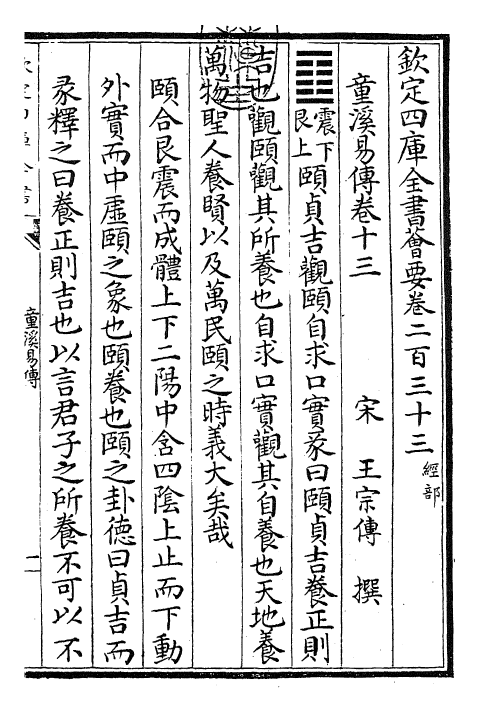 欽定四庫全書薈要卷二百三十三 經部
童溪易傳卷十三 宋 王宗傳 撰
震下艮上 頤貞吉觀頤自求口實彖曰頤貞吉養正則
吉也觀頤觀其所養也自求口實觀其自養也天地養
萬物聖人養賢以及萬民頤之時義大矣哉
頤合艮震而成體上下二陽中含四陰上止而下動
外實而中虛頤之象也頤養也頤之卦德曰貞吉而
彖釋之曰養正則吉也以言君子之所養不可以不
童溪易傳
一